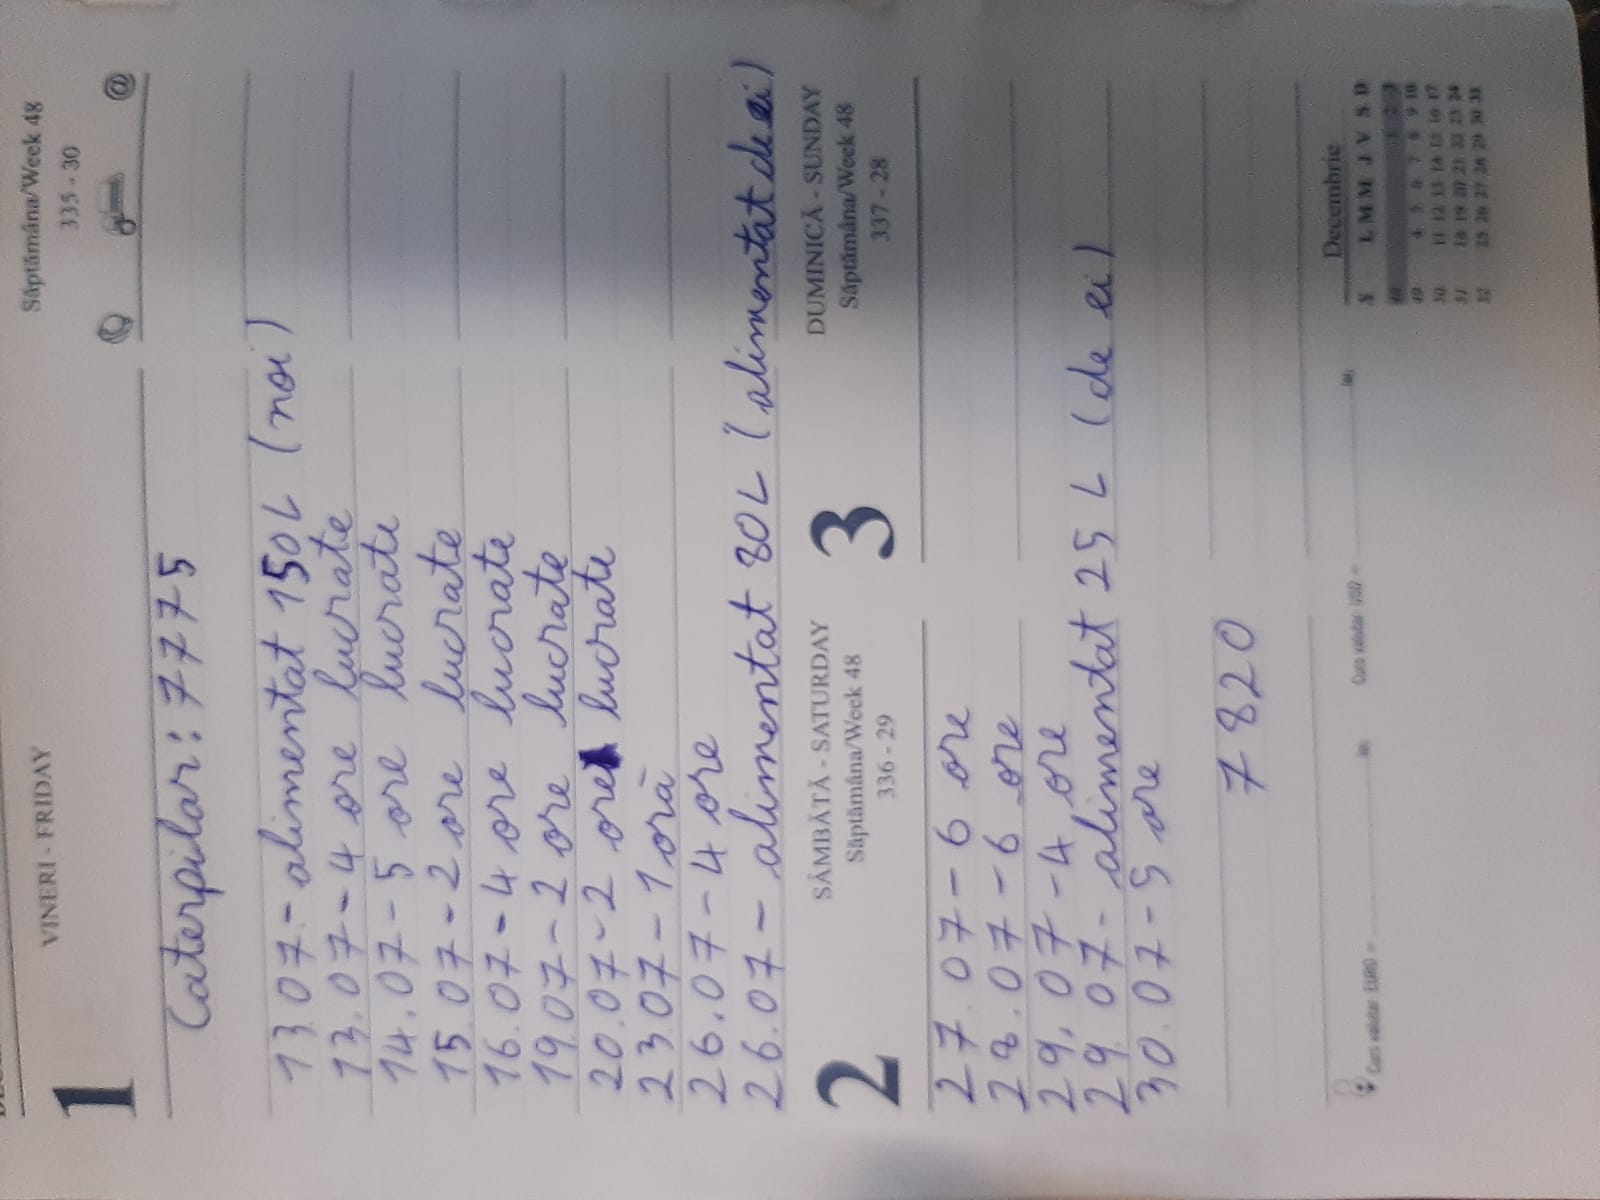 VINERI - FRIDAY
Săptămâna/Week 48
1
335 - 30
@
Caterpilar: 7775
13.07 - alimentat 150 L (noi)
13.07 - 4 ore lucrate
14.07 - 5 ore lucrate
15.07 - 2 ore lucrate
16.07 - 4 ore lucrate
19.07 - 2 ore lucrate
20.07 - 2 ore lucrate
23.07 - 1 oră
26.07 - 4 ore
26.07 - alimentat 80 L (alimentat de ei)
SÂMBĂTĂ - SATURDAY
DUMINICĂ - SUNDAY
2
Săptămâna/Week 48
3
Săptămâna/Week 48
336 - 29
337 - 28
27.07 - 6 ore
28.07 - 6 ore
29.07 - 4 ore
29.07 - alimentat 25 L (de ei)
30.07 - 5 ore
7820
Decembrie
S L M M J V S D
48 1 2 3
49 4 5 6 7 8 9 10
50 11 12 13 14 15 16 17
51 18 19 20 21 22 23 24
52 25 26 27 28 29 30 31
Curs valutar EURO = lei; Curs valutar USD = lei;